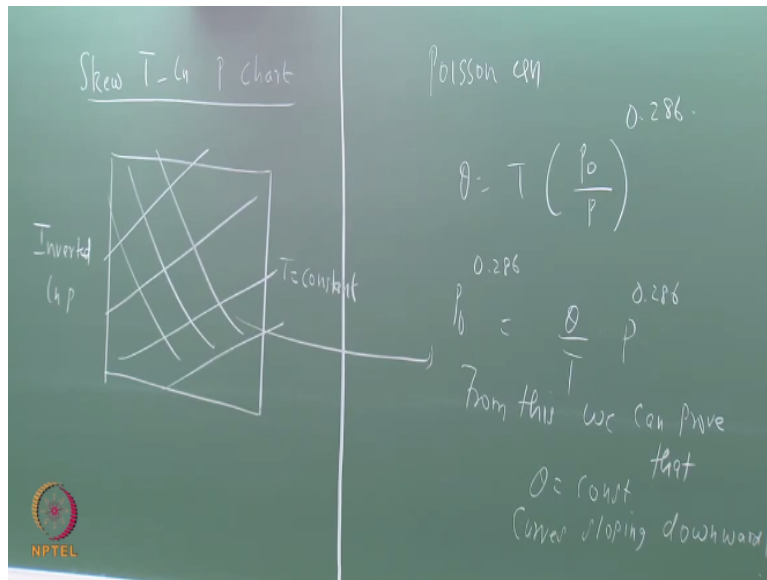 Skew T-ln P chart
Inverted
ln p
T=constant
Poisson eqn
θ = T (P0/P)^0.286.
P0^0.286 = θ/T P^0.286
From this we can prove
that
θ = const
Curves sloping downward
NPTEL